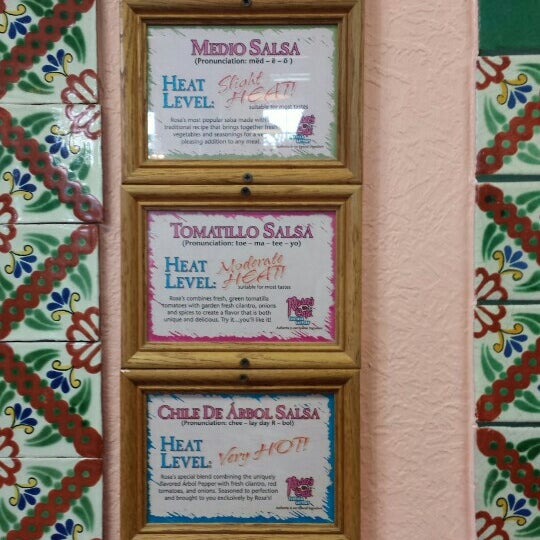 MEDIO SALSA
(Pronunciation: mēd – ē – ō )
HEAT
LEVEL:
Slight
HEAT!
suitable for most tastes
Rosa's most popular salsa made with
traditional recipe that brings together fresh
vegetables and seasonings for a
pleasing addition to any meal
TOMATILLO SALSA
(Pronunciation: toe – ma – tee – yo)
HEAT
LEVEL:
Moderate
HEAT!
suitable for most tastes
Rosa's combines fresh, green tomatillo
tomatoes with garden fresh cilantro, onions
and spices to create a flavor that is both
unique and delicious. Try it...you'll like it!
Rosa's
CHILE DE ÁRBOL SALSA
(Pronunciation: chee – lay day R – bol)
HEAT
LEVEL:
Very HOT!
Rosa's special blend combining the uniquely
flavored Árbol Pepper with fresh cilantro, red
tomatoes, and onions. Seasoned to perfection
and brought to you exclusively by Rosa's!
Rosa's